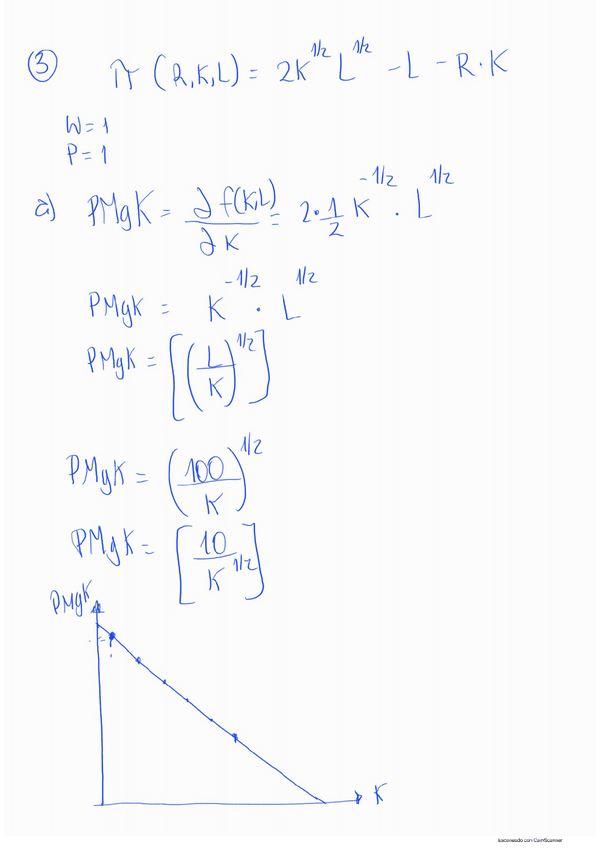 ③ π (R,K,L) = 2K^1/2 L^1/2 - L - R·K
W=1
P=1
a) PMgK = ∂f(K,L)/∂K = 2·1/2 K^-1/2 · L^1/2
PMgK = K^-1/2 · L^1/2
PMgK = [(L/K)^1/2]
PMgK = (100/K)^1/2
PMgK = [10/K^1/2]
PMgK
K
Escaneado con CamScanner